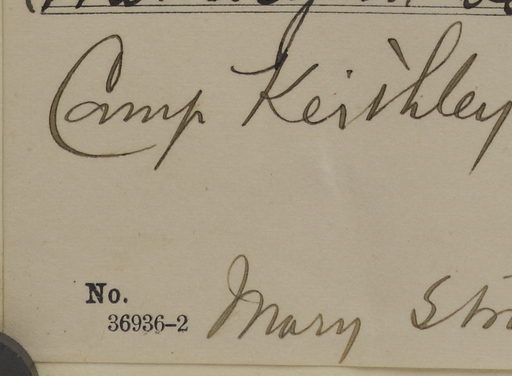 Camp Keithley
No.
36936-2 Mary